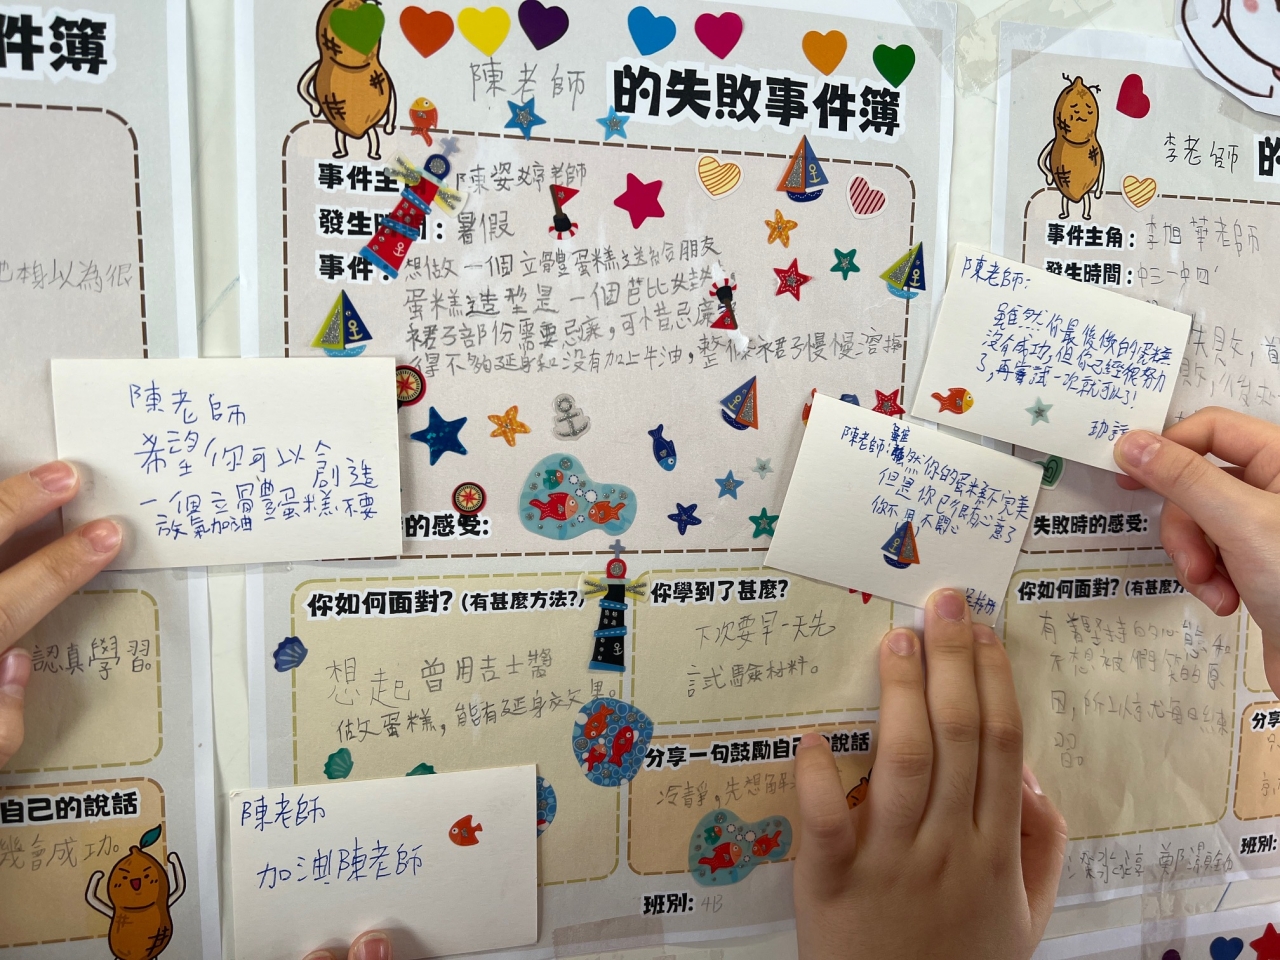 件簿
陳老師 的失敗事件簿
事件主
陳姿婷老師
發生時間：暑假
事件：想做一個立體蛋糕送給朋友
蛋糕造型是一個芭比女
裙子部份需要忌廉，可惜忌廉
得不夠延身和沒有加上牛油，整個裙子慢慢溶掉
的感受:
你如何面對? (有甚麼方法?)
想起曾用吉士醬
做蛋糕，能有延身放效果。
你學到了甚麼?
下次要早一天先
試驗材料。
分享一句鼓勵自己的說話
冷靜，先想解
班別: 4B
陳老師
希望你可以創造
一個立體蛋糕不要
放氣加油
陳老師
加油陳老師
陳老師：雖然你的蛋糕不完美
但是你已很有心意了
你不用不開心
陳老師：
雖然你最後做的蛋糕
沒有成功，但你已經很努力
了，再嘗試一次就可以了！
李老師 的
事件主角：李旭華老師
發生時間：中三-中四
失敗時的感受:
你如何面對? (有甚麼方
有著堅持的心態和
不想被
因，所以
習。
分享
班別:
也本身以為很
認真學習。
自己的說話
幾會成功。